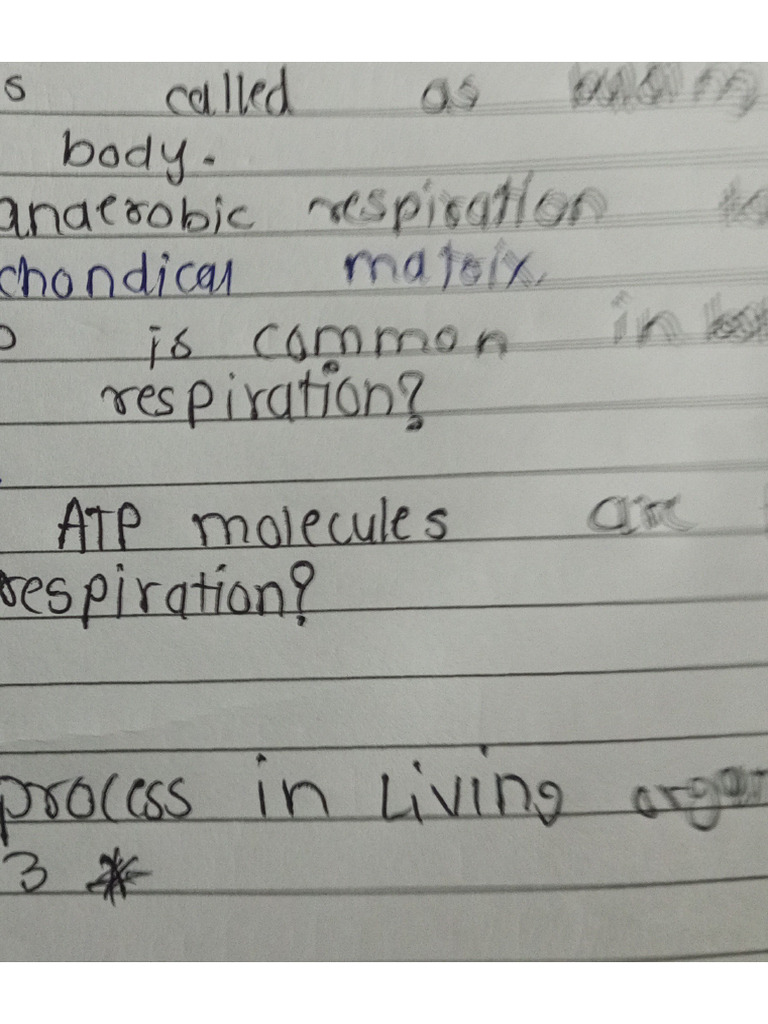 s called as
body.
anaerobic respiration
chondical matrix.
is common in
respiration?
ATP molecules are
respiration?
process in Living
3